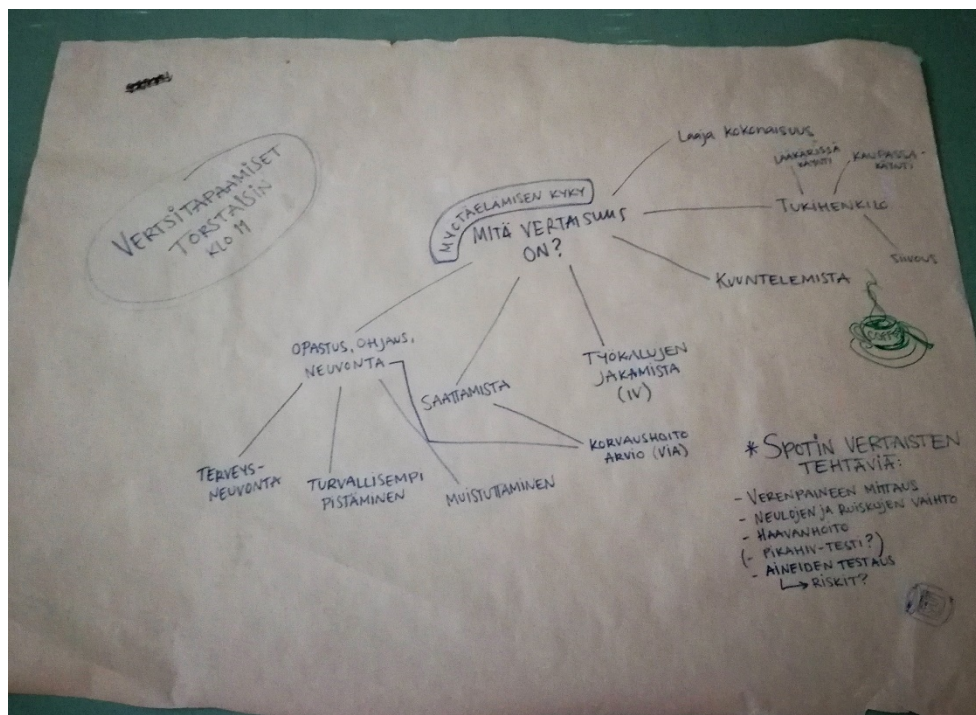 VERTSITAPAAMISET
TORSTAISIN
KLO 11
MYÖTÄELÄMISEN KYKY
MITÄ VERTAISUUS
ON?
LAAJA KOKONAISUUS
TUKIHENKILÖ
LÄÄKÄRISSÄ
KÄYNTI
KAUPASSA-
KÄYNTI
SIIVOUS
KUUNTELEMISTA
TYÖKALUJEN
JAKAMISTA
(IV)
SAATTAMISTA
KORVAUSHOITO
ARVIO (VIA)
OPASTUS, OHJAUS,
NEUVONTA
TERVEYS-
NEUVONTA
TURVALLISEMPI
PISTÄMINEN
MUISTUTTAMINEN
* SPOTIN VERTAISTEN
TEHTÄVIÄ:
- VERENPAINEEN MITTAUS
- NEULOJEN JA RUISKUJEN VAIHTO
- HAAVANHOITO
(- PIKAHIV-TESTI?)
- AINEIDEN TESTAUS
↳ RISKIT?